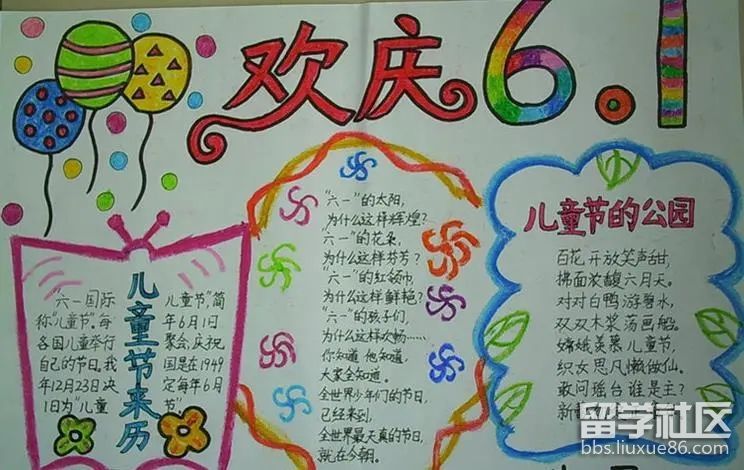 欢庆6.1
儿童节来历
"六一国际
称"儿童节".每
各国儿童举行
自己的节日.我
年12月23日决
1日为"儿童
儿童节".简
年6月1日
聚会,庆祝
国是在1949
定每年6月
节"
"六一"的太阳,
为什么这样辉煌?
"六一"的花朵,
为什么这样芬芳?
"六一"的红领巾
为什么这样鲜艳?
"六一"的孩子们,
为什么这样欢畅……
你知道 他知道,
大家全知道.
全世界少年们的节日,
已经来到,
全世界最天真的节日,
就在今朝.
儿童节的公园
百花开放笑声甜,
拂面浓馥六月天。
对对白鸭游碧水,
双双木桨荡画船。
嫦娥羡慕儿童节,
织女思凡懒做仙。
敢问瑶台谁是主?
新
留学社区
bbs.liuxue86.com